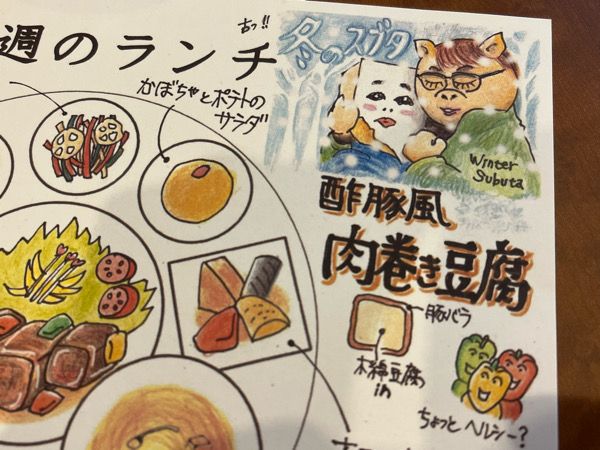 週のランチ
古っ!!
冬のスブタ
Winter
Subuta
かぼちゃとポテトの
サラダ
酢豚風
肉巻き豆腐
豚バラ
木綿豆腐
in
ちょっとヘルシー?